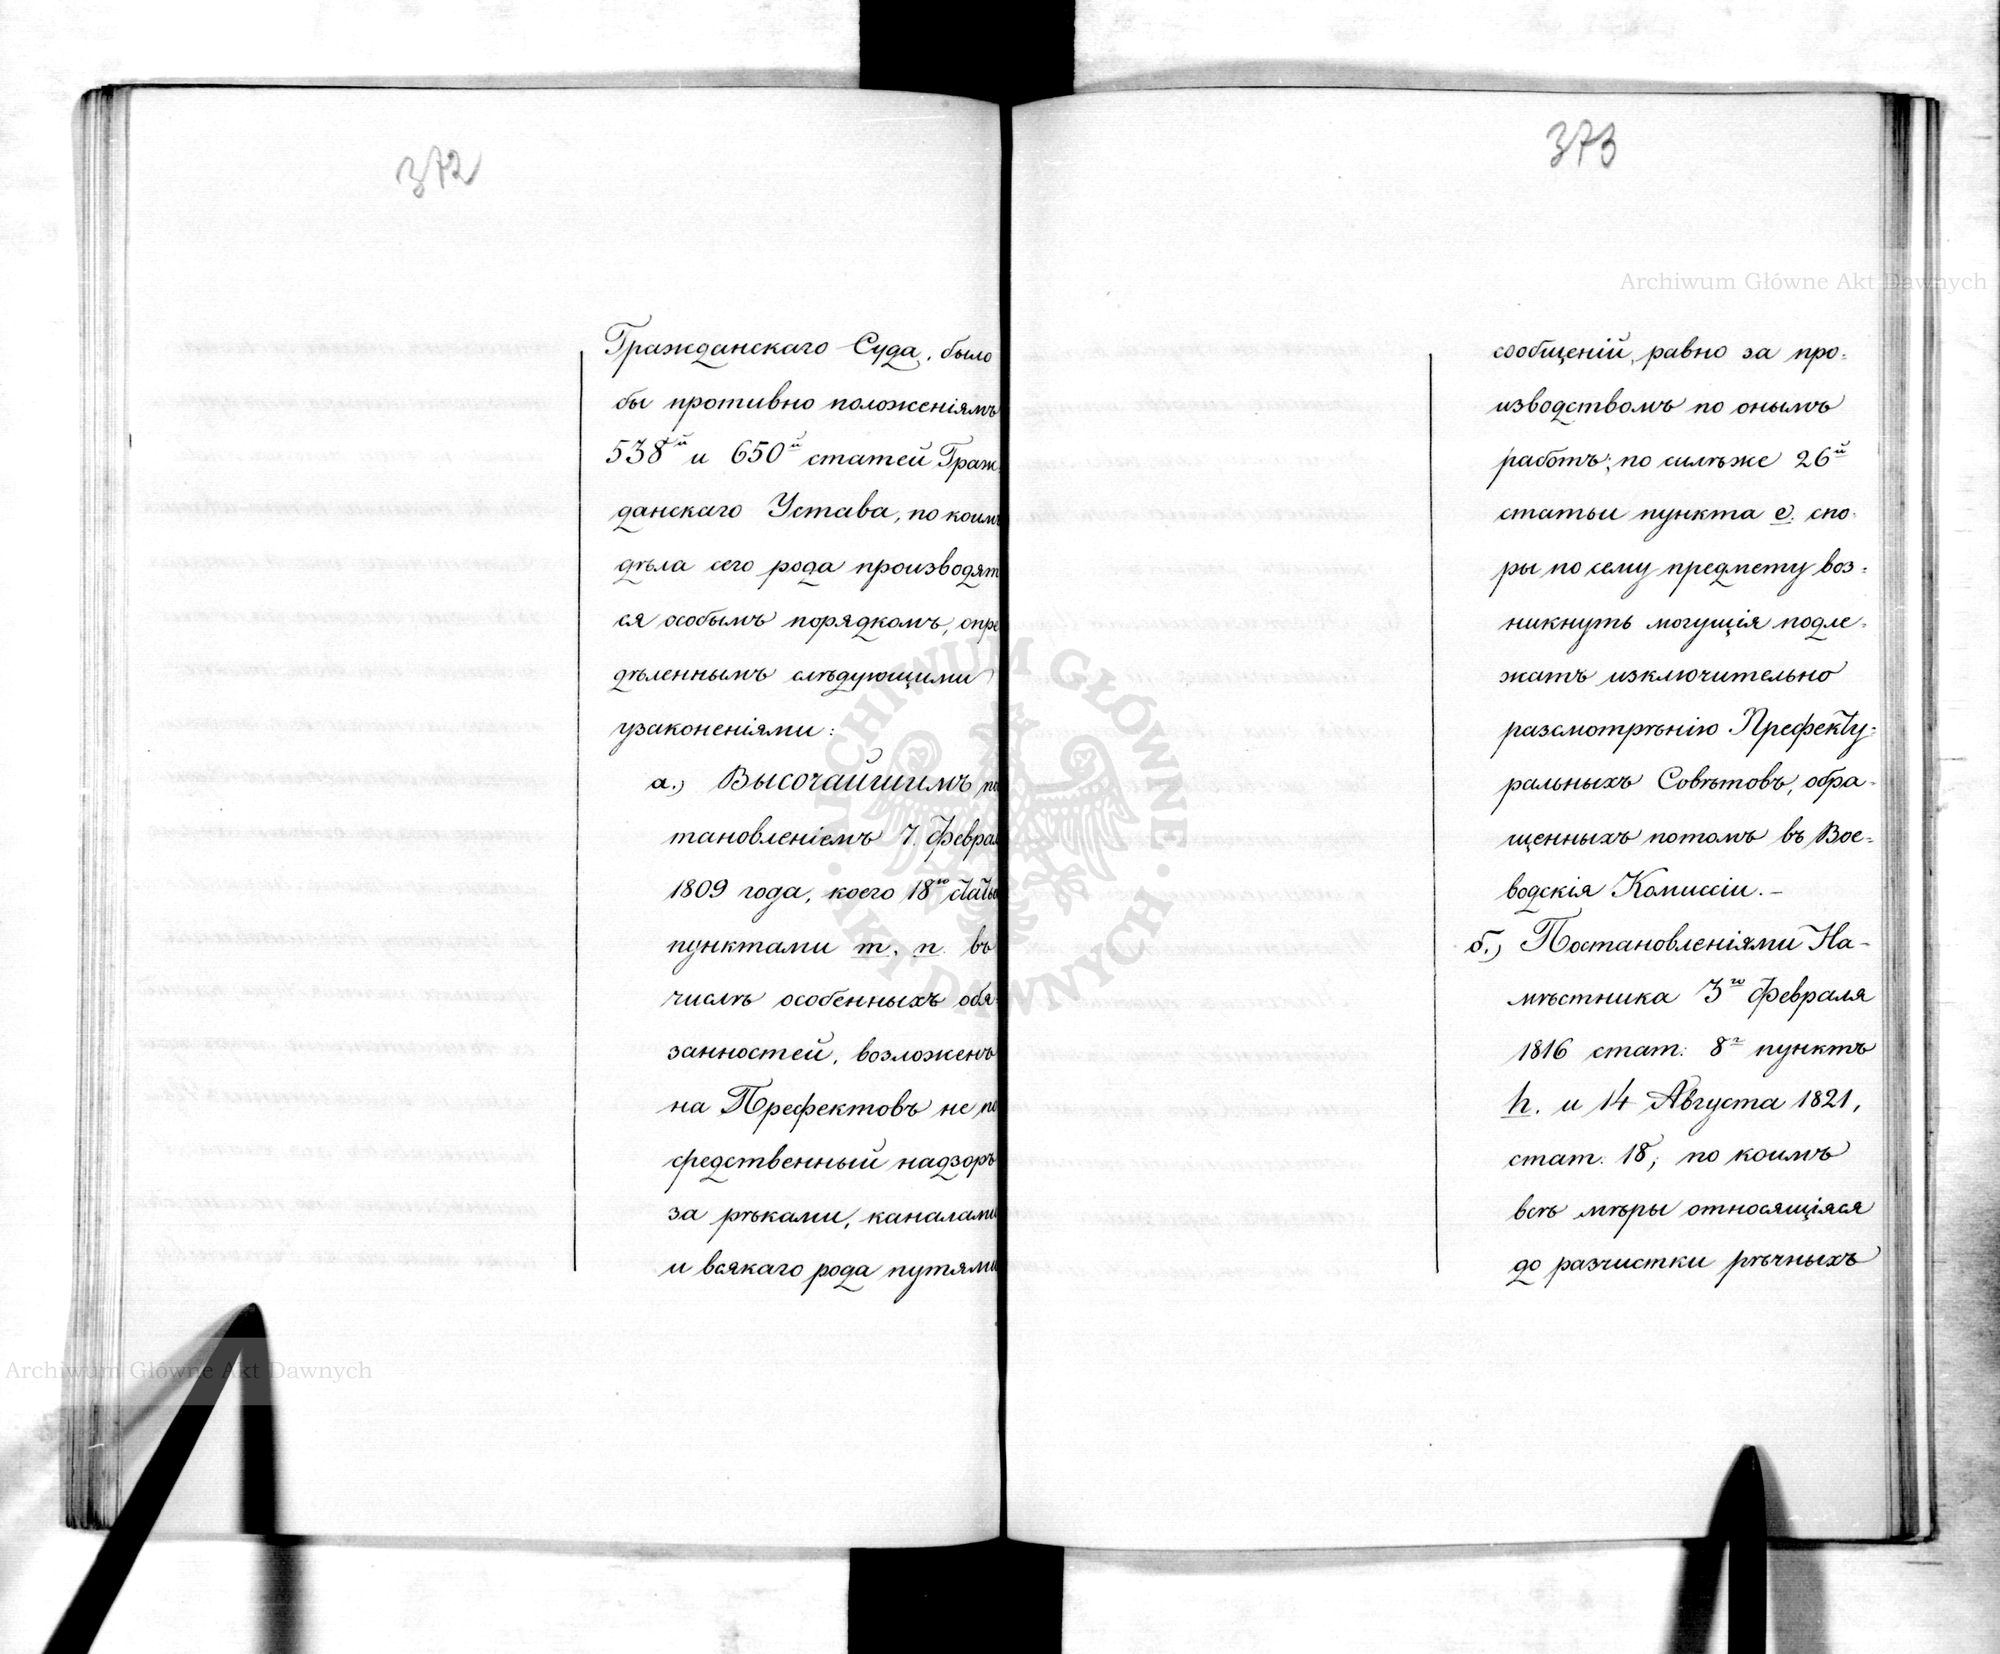 372
Гражданскаго Суда, было
бы противно положеніямъ
538й и 650й статей Граж
данскаго Устава, по коимъ
дѣла сего рода производят
ся особымъ порядкомъ, опре
дѣленнымъ слѣдующими
узаконеніями:
а.) Высочайшимъ по
тановленіемъ 7. Феврал
1809 года, коего 18ю статьи
пунктами т, п. въ
числѣ особенныхъ обя
занностей, возложенъ
на Префектовъ не по
средственный надзоръ
за рѣками, каналами
и всякаго рода путями
373
сообщеній, равно за про=
изводствомъ по онымъ
работъ; по силѣже 26й
статьи пункта е. спо=
ры по сему предмету воз=
никнуть могущія подле=
жатъ изключительно
разсмотрѣнію Префекту=
ральныхъ Совѣтовъ, обра=
щенныхъ потомъ въ Вое=
водскія Комиссіи.—
б.) Постановленіями На-
мѣстника 3го Февраля
1816 стат: 8я пунктъ
h. и 14 Августа 1821,
стат. 18, по коимъ
всѣ мѣры относящіяся
до разчистки рѣчныхъ
Archiwum Główne Akt Dawnych
Archiwum Główne Akt Dawnych
ARCHIWUM GŁÓWNE AKT DAWNYCH